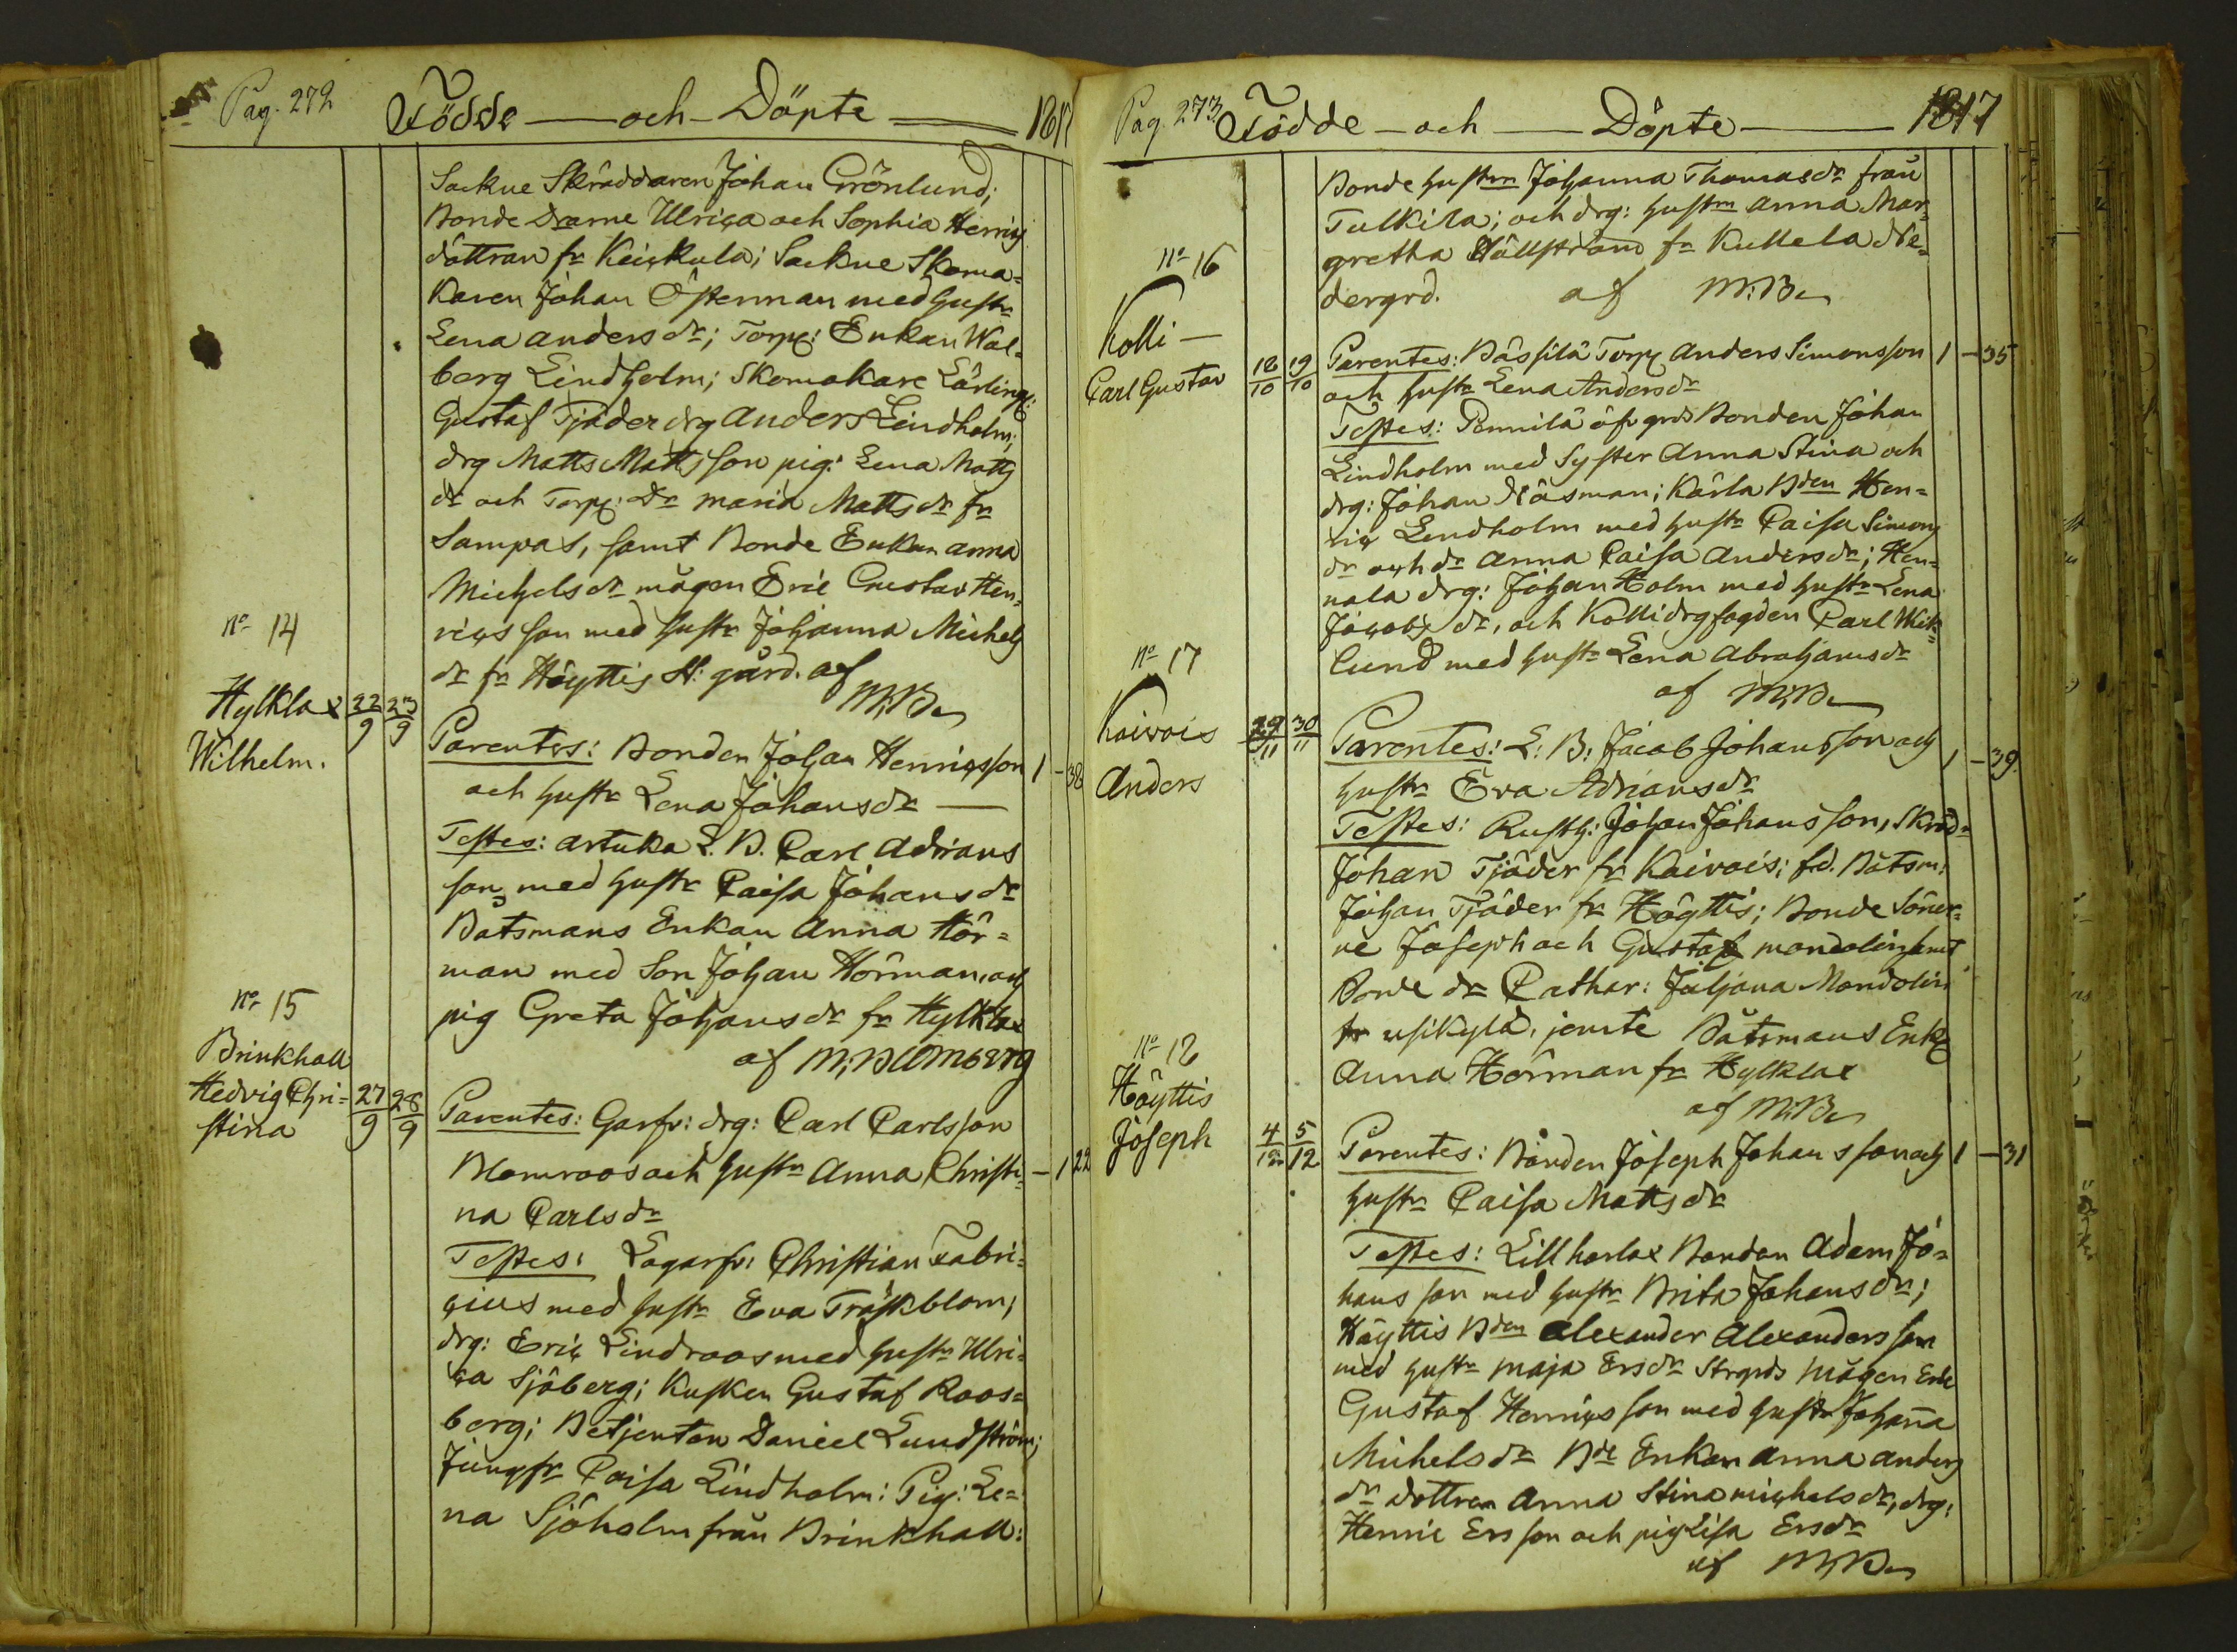 Pag. 272
Födde — och — Döpte — 1817
Sockne Skräddaren Johan Grönlund;
Bonde Drarne Ulrica och Sophia Henrics
döttran fr Keickula; Sockne Skoma=
karen Johan Österman med hustr
Lena Andersdr; Torp: Enkan Wal=
borg Lindholm; Skomakare Lärling:
Gustaf Tjäder drg Anders Lindholm;
drg Matts Mattsson pig: Lena Matts
dr och Torp: Dr Maria Mattsdr fr
Sampas, samt Bonde Enkan Anna
Michelsdr mågen Eric Gustav Hen=
rics son med hustr Johanna Michels
dr fr Höyttis St: gård. af
M:B
no 14
Hylklax
Wilhelm.
22/9 23/9
Parentes: Bonden Johan Henricsson 1 – 38
och hustr Lena Johansdr —
Testes: Artuka L. B. Carl Adrians
son med hustr Caisa Johansdr
Båtsmans Enkan Anna Hör=
man med Son Johan Hörman, och
pig Greta Johansdr fr Hylklax
af M: Blomberg
no 15
Brinkhall
Hedvig Chri=
stina
27/9 28/9
Parentes: Garfv: drg: Carl Carlsson
Blomroos och hustr Anna Christi= – 1 22
na Carlsdr
Testes: Logarfv: Christian Fabri=
cius med hustr Eva Träskblom;
drg: Eric Lindroos med hustr Ulri=
ca Sjöberg; Kusken Gustaf Roos=
berg; Betjenten Daniel Lundström;
Jungfr Caisa Lindholm: Pig: Le=
na Sjöholm från Brinkhall:
Pag. 273
Födde — och — Döpte — 1817
Bonde hustrun Johanna Thomasdr från
Tulkila; och drg: hustrn Anna Mar=
gretha Hällström fr Kullela Ne=
dergrd. af M:B
no 16
Kolli —
Carl Gustav
18/10 19/10
Parentes: Bässilä Torp Anders Simonsson 1 – 35
och hustr Lena Andersdr
Testes: Pennilä öfr grds Bonden Johan
Lindholm med Syster Anna Stina och
drg: Johan Näsman; Kärla Bden Hen=
ric Lendholm med hustr Caisa Simons
dr och dr Anna Caisa Andersdr; Hen=
nala drg: Johan Holm med hustr Lena
Jacobs dr, och Kolli drgfogden Carl Wik=
lund med hustr Lena Abrahamsdr
af M:B
no 17
Kaivois
Anders
29/11 30/11
Parentes: L: B: Jacob Johansson och 1 – 39.
hustr Eva Adriansdr
Testes: Rusth: Johan Johansson, Skräd=
Johan Tjäder fr Kaivois; fd. Båtsm:
Johan Tjäder fr Höyttis; Bonde Söner=
ne Joseph och Gustaf Mandelin, samt
Bonde dr Cathar: Juliana Mandolin
fr Usikylä, jemte Båtsmans Enk
Anna Hörman fr Hylklax
af M:B
no 18
Höyttis
Joseph
4/12 5/12
Parentes: Bonden Joseph Johansson och 1 – 31
hustr Caisa Mattsdr
Testes: Lill harlax Bonden Adam Jo=
hans son med hustr Brita Johansdr;
Höyttis Bden Alexander Alexandersson
med hustr Maja Ersdr Strgrds Mågen Eric
Gustaf Henrics son med hustr Johanna
Michelsdr Bde Enkan Anna Anders
dr dottran Anna Stina Michelsdr, drg:
Henric Ersson och pig Lisa Ersdr
af M:B